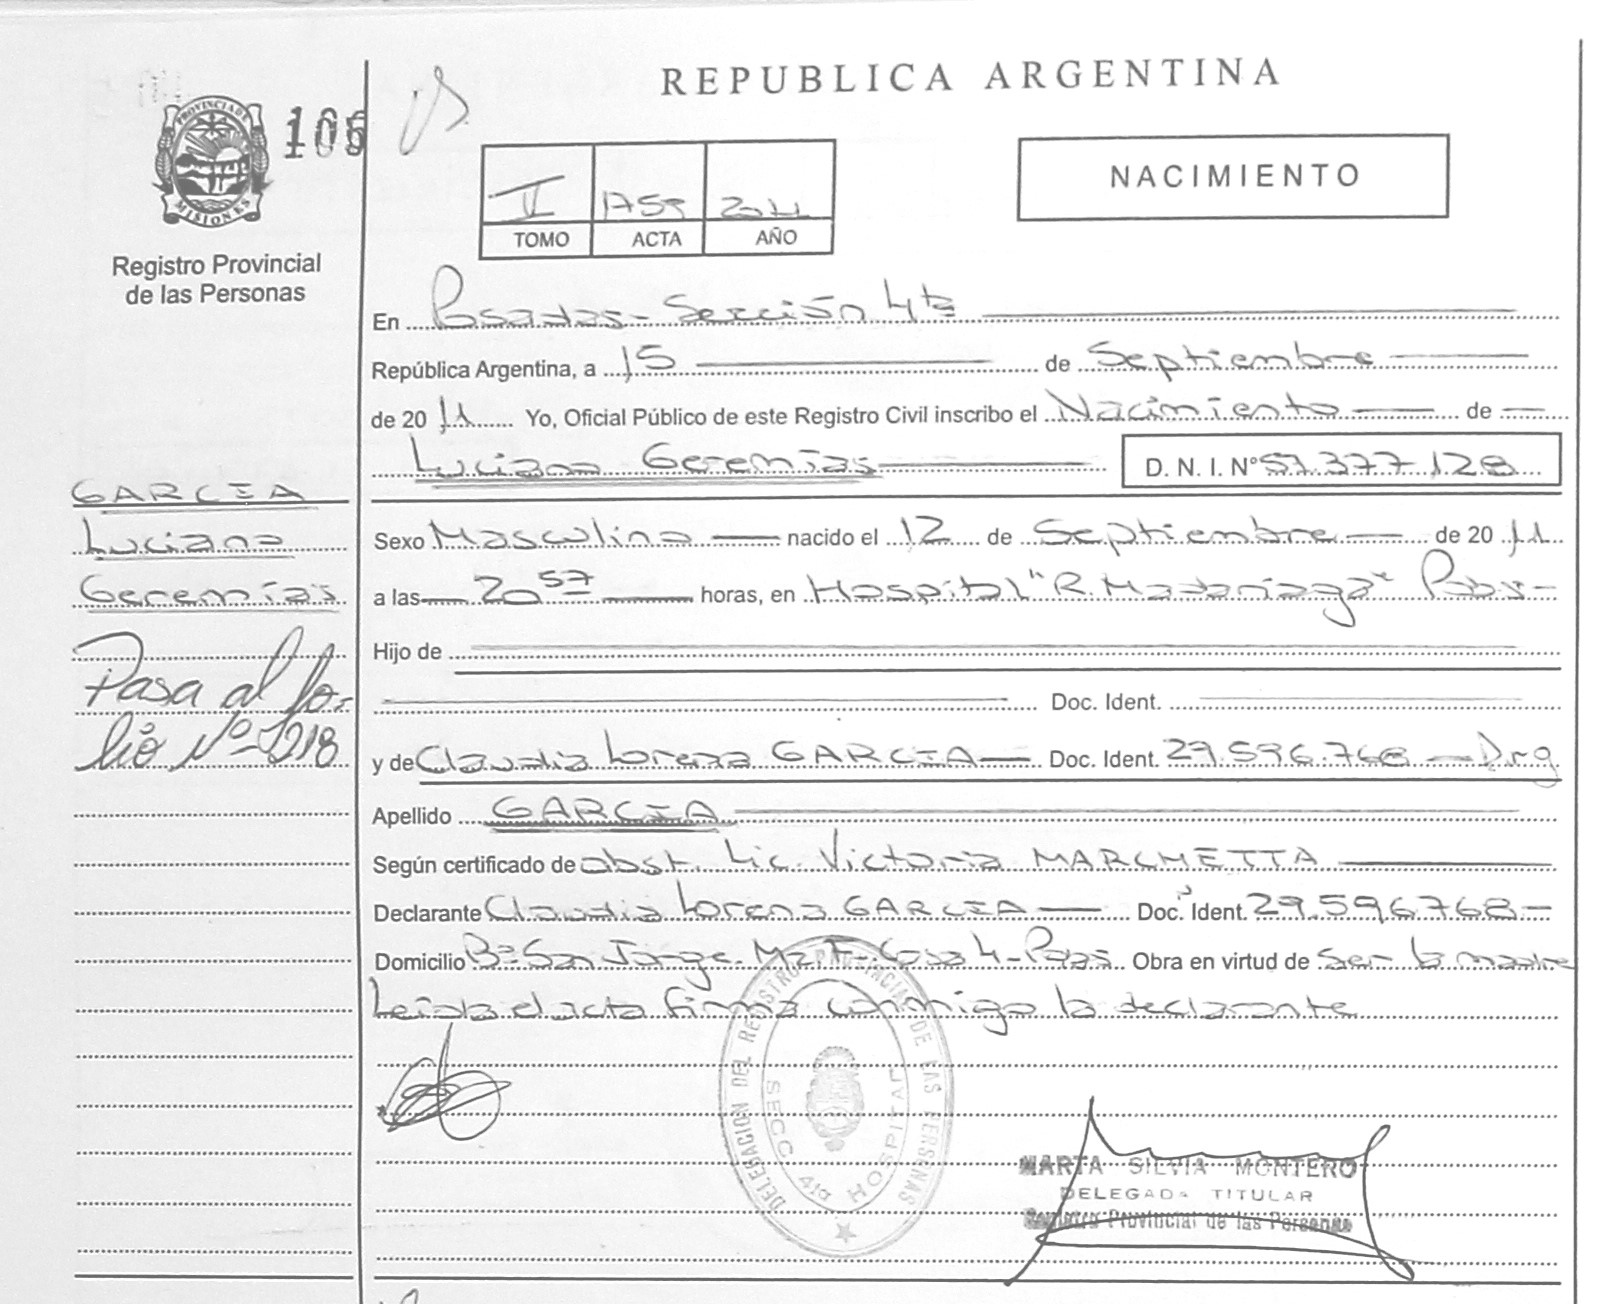 REPUBLICA ARGENTINA
PROVINCIA DE
MISIONES
106
Registro Provincial
de las Personas
II 1759 2011
TOMO ACTA AÑO
NACIMIENTO
En Posadas - Sección 4ta
República Argentina, a 15 de Septiembre
de 20 11 Yo, Oficial Público de este Registro Civil inscribo el Nacimiento de
Luciano Geremías D. N. I. Nº 51.377.128
GARCIA
Luciano
Geremías
Pasa al fo-
lio Nº 1218
Sexo Masculino nacido el 12 de Septiembre de 20 11
a las 20 57 horas, en Hospital "R. Madariaga"
Hijo de
Doc. Ident.
y de Claudia Lorena GARCIA Doc. Ident. 29.596.768
Apellido GARCIA
Según certificado de obst. Lic. Victoria MARCHETTA
Declarante Claudia Lorena GARCIA Doc. Ident. 29.596.768
Domicilio Bº San Jorge - Mz F - Casa 4 - Pdas. Obra en virtud de ser la madre
Leída el acta firma conmigo la declarante
DELEGACION DEL REGISTRO PROVINCIAL DE LAS PERSONAS
SECC 4ta HOSPITAL
MARTA SILVIA MONTERO
DELEGADA TITULAR
Registro Provincial de las Personas